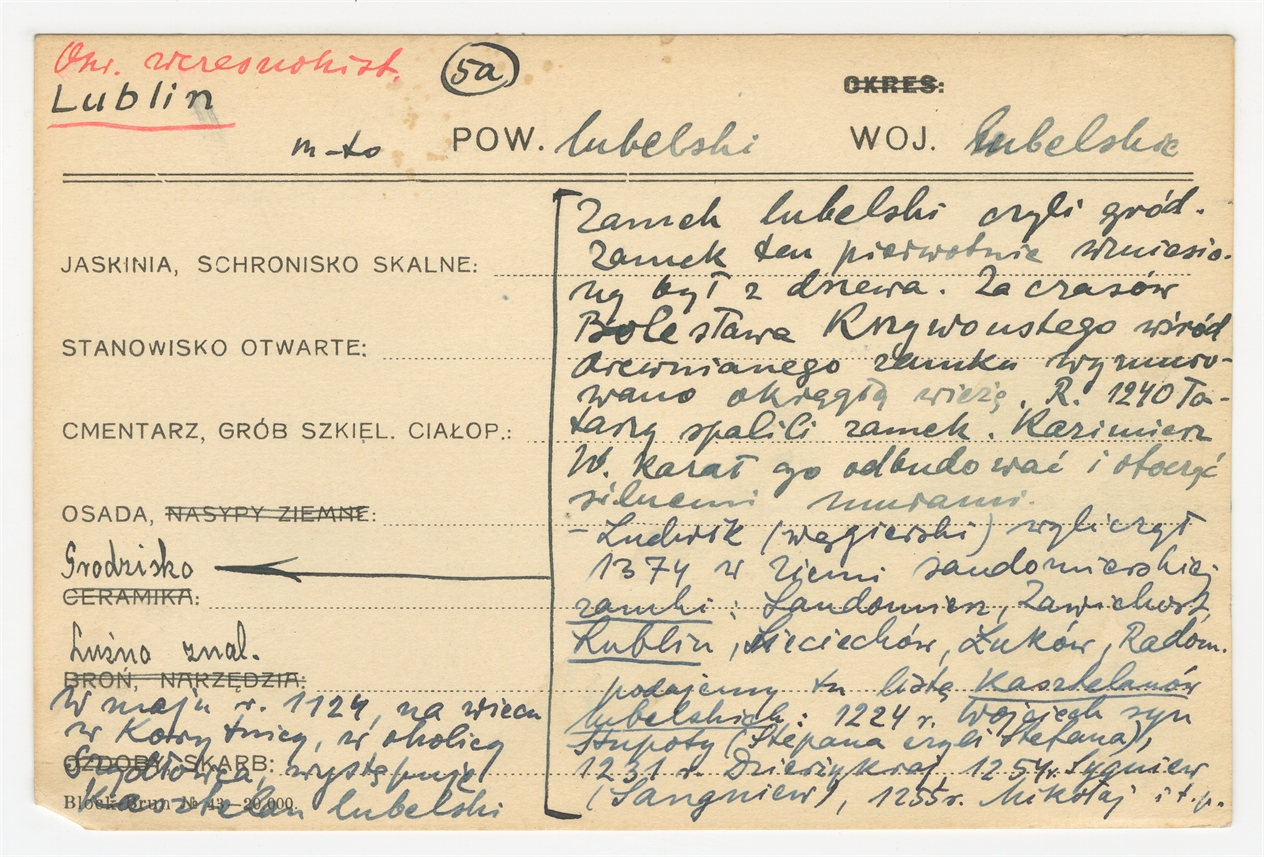 Okr. wczesnohist.
Lublin
5a
OKRES:
m-to POW. lubelski WOJ. lubelskie
JASKINIA, SCHRONISKO SKALNE:
STANOWISKO OTWARTE:
CMENTARZ, GRÓB SZKIEL. CIAŁOP.:
OSADA, NASYPY ZIEMNE:
Grodzisko
CERAMIKA:
Luźno znal.
BROŃ, NARZĘDZIA:
W maju r. 1124, na wiecu
w Korytnicy, w okolicy
OZDOBY, SKARB:
Szydłowca, występuje
Block-Brun № 43—20.000.
Kasztelan lubelski
Zamek lubelski czyli gród.
Zamek ten pierwotnie wzniesio-
ny był z drzewa. Za czasów
Bolesława Krzywoustego wśród
drewnianego zamku wymuro-
wano okrągłą wieżę. R. 1240 Ta-
tarzy spalili zamek. Kazimierz
W. kazał go odbudować i otoczyć
silnemi murami.
- Ludwik (węgierski) wyliczył
1374 w ziemi sandomierskiej
zamki: Sandomierz, Zawichost,
Lublin, Sieciechów, Łuków, Radom.
podajemy tu listę Kasztelanów
lubelskich: 1224 r. Wojciech syn
Stupoty (Stepana czyli Stefana),
1231 r. Dzierżykraj, 1254r. Sygniew
(Sangniew), 1255r. Mikołaj i t. p.